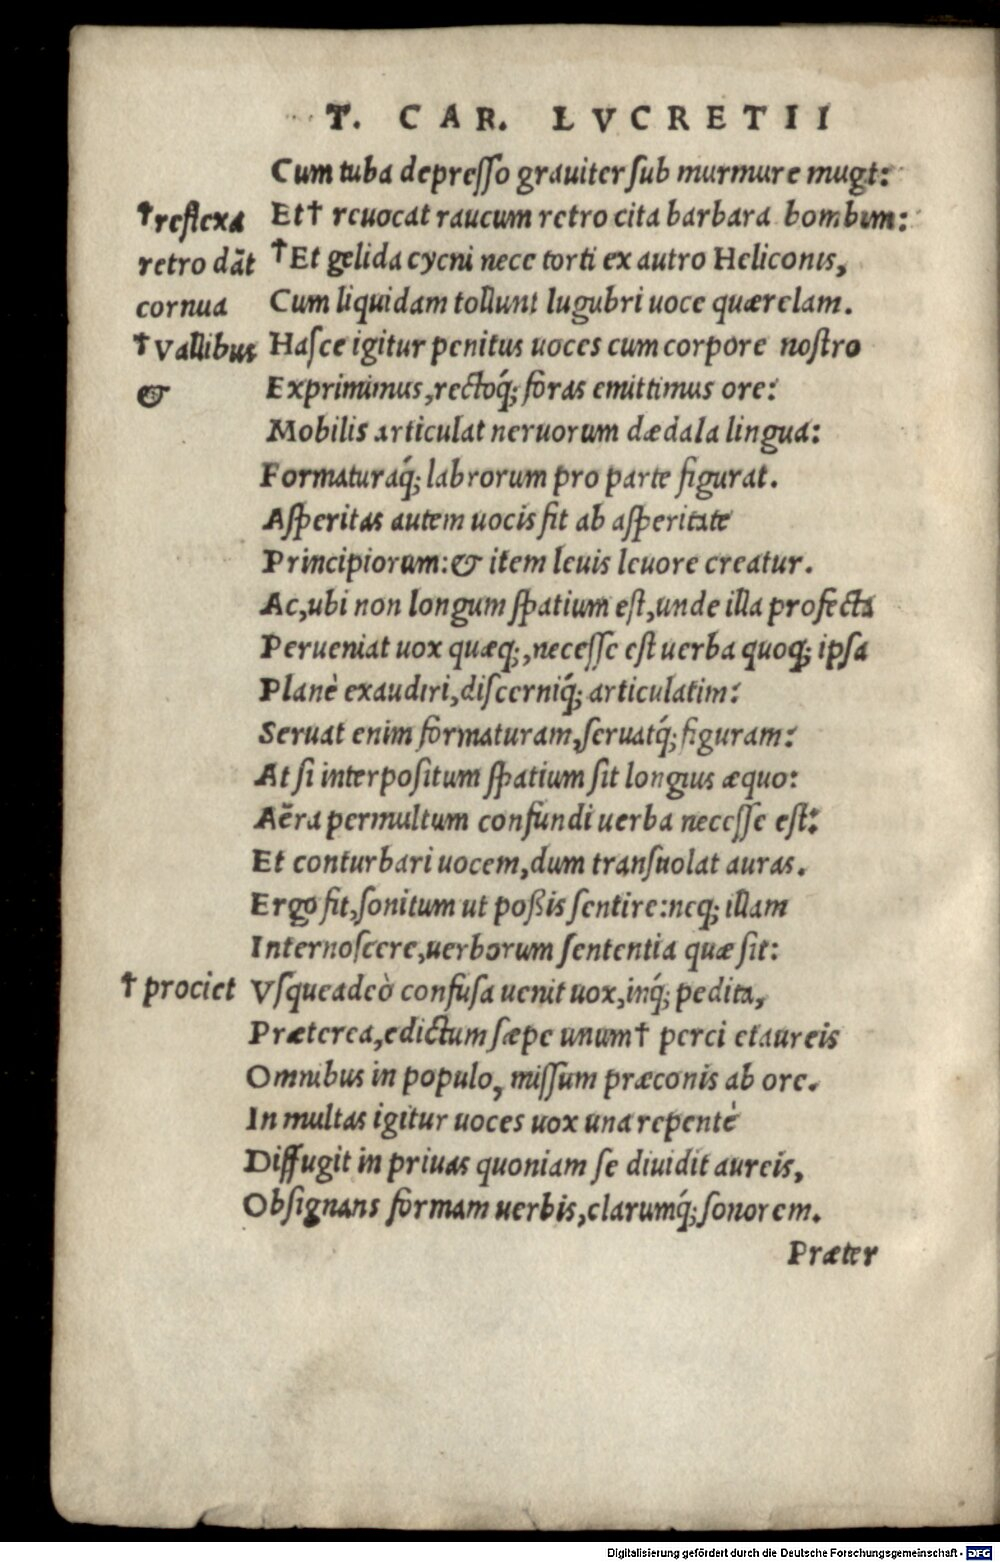 T. CAR. LVCRETII
Cum tuba depreſſo grauiter ſub murmure mugt:
Et† reuocat raucum retro cita barbara bombum:
†Et gelida cycni nece torti ex autro Heliconis,
Cum liquidam tollunt lugubri uoce quærelam.
Haſce igitur penitus uoces cum corpore nostro
Exprimimus, rectoq́; foras emittimus ore:
Mobilis articulat neruorum dædala lingua:
Formaturaq́; labrorum pro parte figurat.
Aſperitas autem uocis fit ab aſperitate
Principiorum: & item leuis leuore creatur.
Ac, ubi non longum ſpatium eſt, unde illa profecta
Perueniat uox quæq;, neceſſe eſt uerba quoq; ipſa
Planè exaudiri, diſcerniq́; articulatim:
Seruat enim formaturam, ſeruatq́; figuram:
At ſi interpoſitum ſpatium ſit longius æquo:
Aëra permultum confundi uerba neceſſe eſt:
Et conturbari uocem, dum tranſuolat auras.
Ergo fit, ſonitum ut poßis ſentire: neq; illam
Internoſcere, uerborum ſententia quæ ſit:
Vſqueadeò confuſa uenit uox, inq́; pedita,
Præterea, edictum ſæpe unum† perci et aureis
Omnibus in populo, miſſum præconis ab ore.
In multas igitur uoces uox una repentè
Diffugit in priuas quoniam ſe diuidit aureis,
Obſignans formam uerbis, clarumq́; ſonorem.
Præter
†reflexa
retro dāt
cornua
†Vallibus
&
† prociet
Digitalisierung gefördert durch die Deutsche Forschungsgemeinschaft - DFG